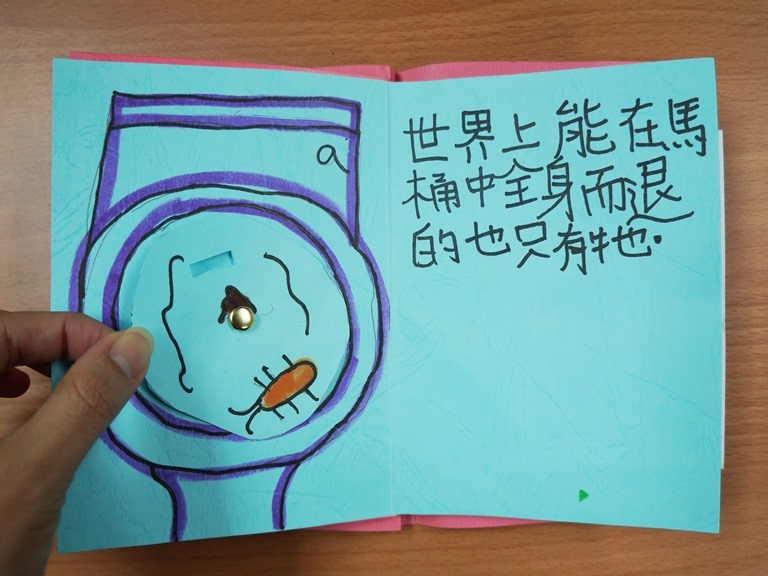 世界上能在馬
桶中全身而退
的也只有牠.